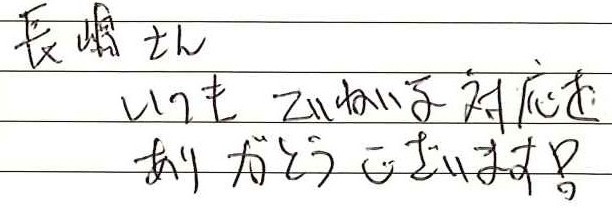 長嶋さん
いつも ていねいな 対応を
ありがとうございます!